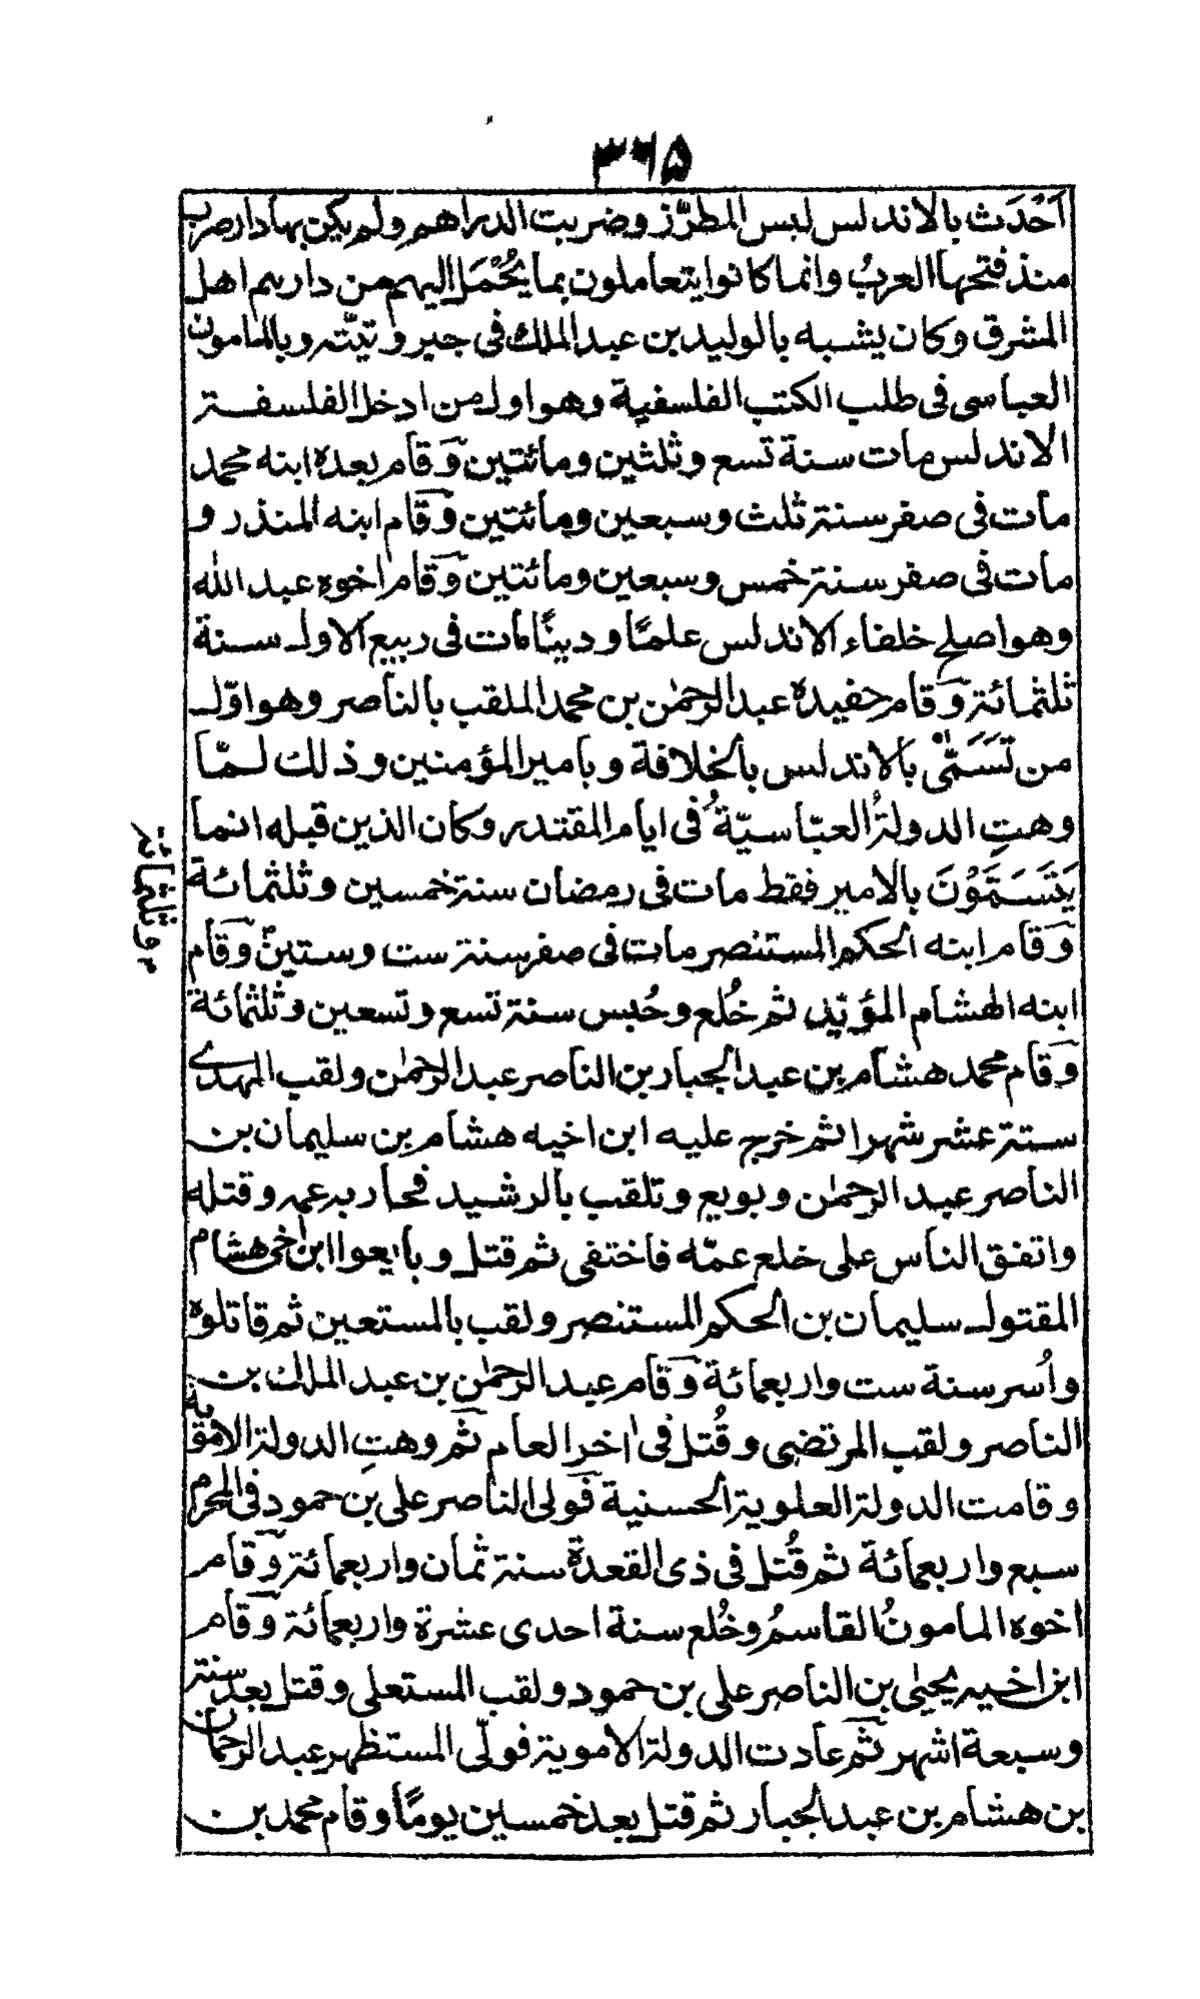 ۳۶۵
اَحْدَث بالاندلس لبس المطرّز وضربت الدراهم ولم يكن بها دار ضرب
منذ فتحها العربُ وانما كانوا يتعاملون بما يُحْمَل اليهم من دارهم اهل
المشرق وكان يشبه بالوليد بن عبد الملك فى جبروتيّته وبالمامون
العباسى فى طلب الكتب الفلسفية وهو اول من ادخل الفلسفة
الاندلس مات سنة تسع وثلثين ومائتين وقام بعده ابنه محمد
مات فى صفر سنة ثلث وسبعين ومائتين وقام ابنه المنذر و
مات فى صفر سنة خمس وسبعين ومائتين وقام اخوه عبد الله
وهو اصلح خلفاء الاندلس علمًا ودينًا مات فى ربيع الاول سنة
ثلثمائة وقام حفيده عبد الرحمٰن بن محمد الملقب بالناصر وهو اوّل
من تَسَمّٰى بالاندلس بالخلافة وبامير المؤمنين وذلك لمّا
وهتِ الدولةُ العبّاسيّةُ فى ايام المقتدر وكان الذين قبله انما
يَتَسَمَّوْنَ بالامير فقط مات فى رمضان سنة خمسين وثلثمائة
وقام ابنه الحكم المستنصر مات فى صفر سنة ست وستين وقام
ابنه الهشام المؤيّد ثم خُلع وحُبس سنة تسع وتسعين وثلثمائة
وقام محمد هشام بن عبد الجبار بن الناصر عبد الرحمٰن ولقب المهدى
ستة عشر شهرا ثم خرج عليه ابن اخيه هشام بن سليمان بن
الناصر عبد الرحمٰن وبويع وتلقب بالرشيد فحاربه عمه وقتله
واتفق الناس على خلع عمّه فاختفى ثم قتل وبايعوا ابن اخى هشام
المقتول سليمان بن الحكم المستنصر ولقب بالمستعين ثم قاتلوه
واُسر سنة ست واربعمائة وقام عبد الرحمٰن بن عبد الملك بن
الناصر ولقب المرتضى وقُتل فى اٰخر العام ثم وهتِ الدولة الاموية
وقامت الدولة العلوية الحسنية فولى الناصر على بن حمود فى المحرم
سبع واربعمائة ثم قُتل فى ذى القعدة سنة ثمان واربعمائة وقام
اخوه المامونُ القاسمُ وخُلع سنة احدى عشرة واربعمائة وقام
ابن اخيه يحيٰى بن الناصر على بن حمود ولقب المستعلى وقتل بعد سنة
وسبعة اشهر ثم عادت الدولة الاموية فولّى المستظهر عبد الرحمان
بن هشام بن عبد الجبار ثم قتل بعد خمسين يومًا وقام محمد بن
م وثلثمائة